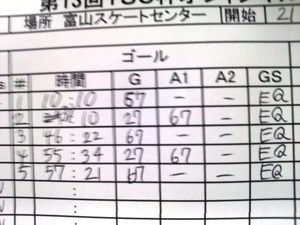 場所 富山スケートセンター 開始 21
ゴール
# 時間 G A1 A2 GS
1 10:10 67 — — EQ
2 10 27 67 — EQ
3 46:22 67 — — EQ
4 55:34 27 67 — EQ
5 57:21 67 — — EQ